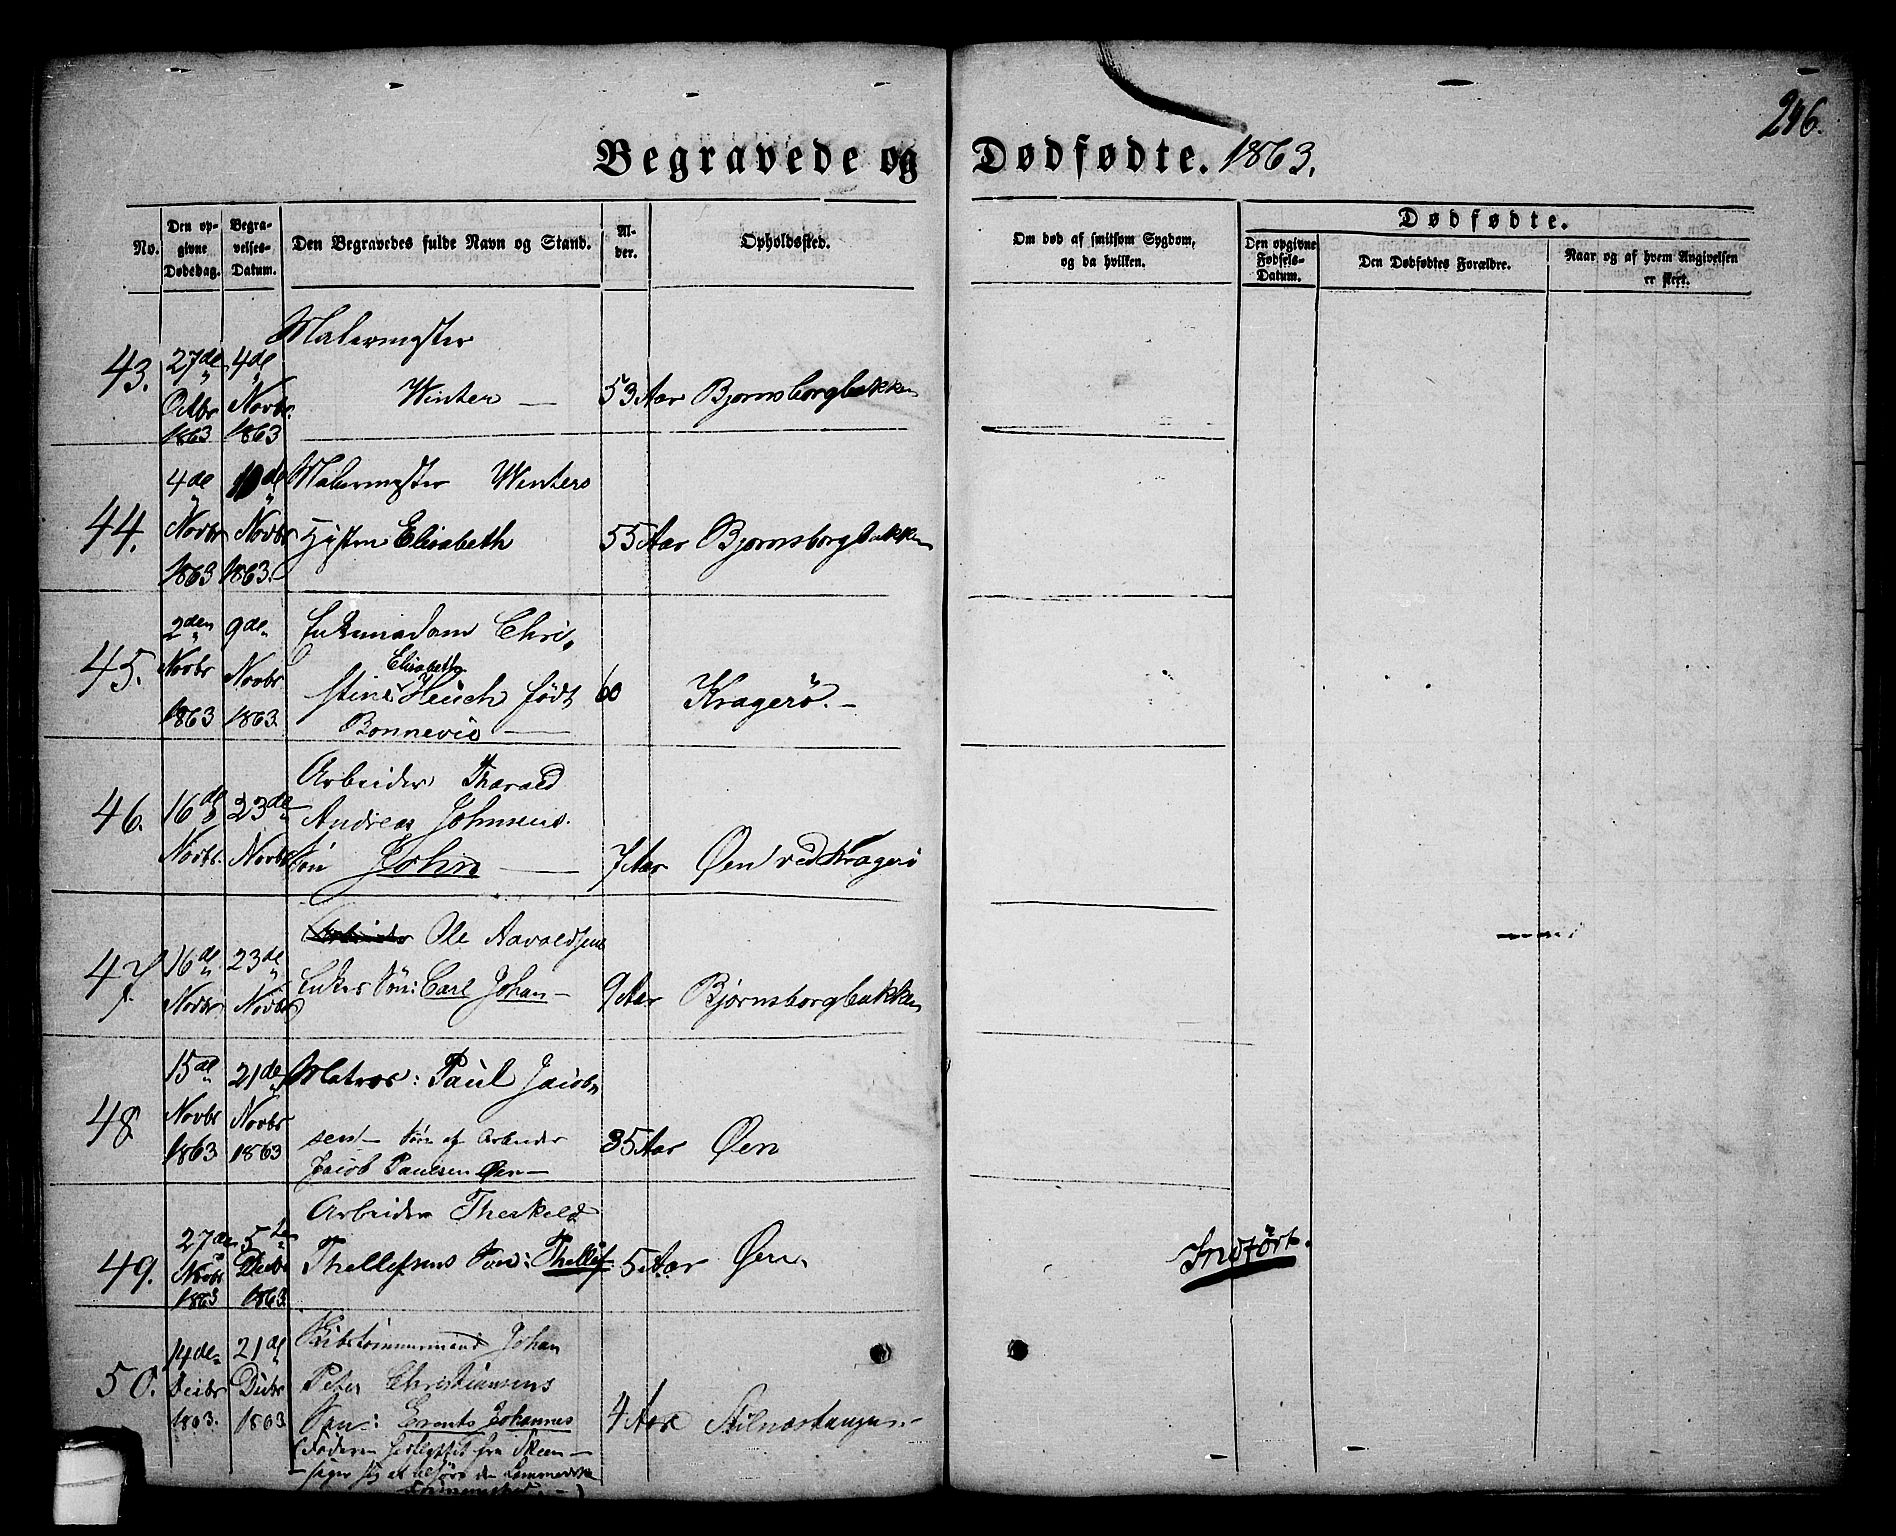 246.
Begravede og Dødfødte. 1863.
No.
Den op-
givne
Dødsdag.
Begra-
velses-
Datum.
Den Begravedes fulde Navn og Stand.
Al-
der.
Opholdssted.
Om død af smitsom Sygdom,
og da hvilken.
Dødfødte.
Den opgivne
Fødsels-
Datum.
Den Dødfødtes Forældre.
Naar og af hvem Angivelsen
er skeet.
43.
27de
Octbr
1863
4de
Novbr.
1863
Malermester
Winter —
53 Aar
Bjornsborgbakken
44.
4de
Novbr
1863
10de
Novbr
1863.
Malermester Winters
Hustru Elisabeth
55 Aar
Bjornsborgbakken
45.
2den
Novbr
1863
9de
Novbr
1863.
Enkemadam Chri-
stine Elisabeth Heuch født
Bonnevie —
60
Kragerø. —
46.
16de
Novbr.
23de
Novbr
Arbeider Tharald
Andreas Johnsens
Søn John —
7 Aar
Øen ved Kragerø
47.
16de
Novbr
23de
Novbr
Arbeider Ole Aavaldsens
Enkes Søn: Carl Johan —
9 Aar
Bjørnsborgbakken
48
15de
Novbr
1863
21de
Novbr
1863
Matros: Paul Jacob-
sen — Søn af Arbeider
Jacob Paulsen Øen —
35 Aar
Øen
49.
27de
Novbr
1863
5te
Decbr
1863
Arbeider Therkeld
Thellefsens Søn: Thellef
5 Aar
Øen.
Indført.
50.
14de
Decbr
1863.
21de
Decbr
1863
Skibstømmermand Johan
Peter Christiansens
Søn: Erents Johannes
(Faderen forflyttet fra Skeen —
— siger sig at tilhøre den Lammerske
4 Aar